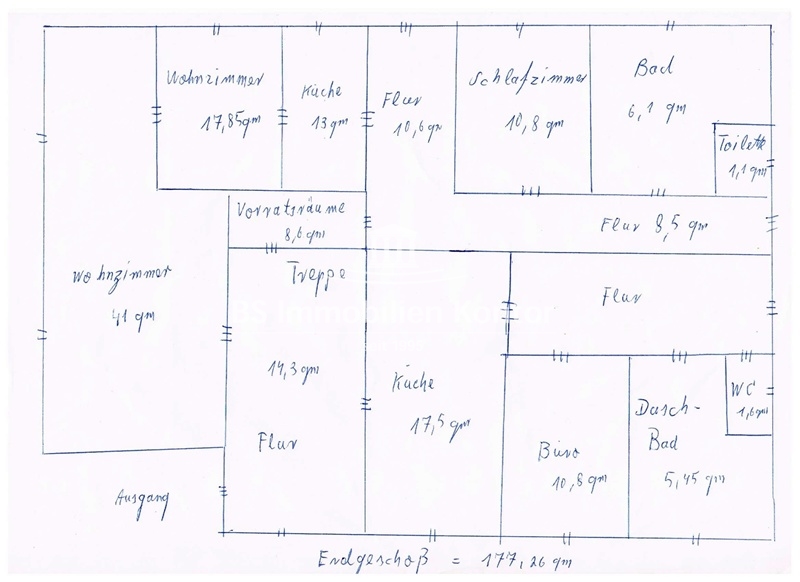 Wohnzimmer
17,85qm
Küche
13qm
Flur
10,6qm
Schlafzimmer
10,8 qm
Bad
6,1 qm
Toilette
1,1 qm
Vorratsräume
8,6 qm
Flur 8,5 qm
Wohnzimmer
41 qm
Treppe
14,3 qm
Flur
Flur
Küche
17,5 qm
Büro
10,8 qm
Dusch-
Bad
5,45 qm
WC
1,6qm
Ausgang
BS Immobilien Kontor
Erdgeschoß = 177,26 qm